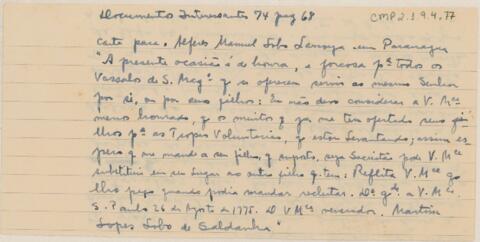 Documentos Interessantes 74 pag 68
CMP 2.1.9.4.77
Carta para Alferes Manuel Lobo em Paranagua
"A presente ocasião é de honra, e forcosa pª todos os
Vassalos de S. Magᵉ q se oferecem servir ao mesmo Senhor
por si, ou por seus filhos: Eu não devo considerar a V. Mᶜᵉ
menos honrado, q os muitos q ja me tem ofertado seus fi-
lhos pª as Tropas Voluntarias, q estou levantando; assim es-
pero q me mande a seu filho, q suposto, seja Secretario pode V. Mᶜᵉ
substituir em seu lugar ao outro filho q tem: Reflita V. Mᶜᵉ q
lho peço quando podia mandar recrutar. Dˢ gᵈᵉ a V. Mᶜᵉ
S. Paulo 26 de Agosto de 1775. D V Mᶜᵉ venerador. Martim
Lopes Lobo de Saldanha"